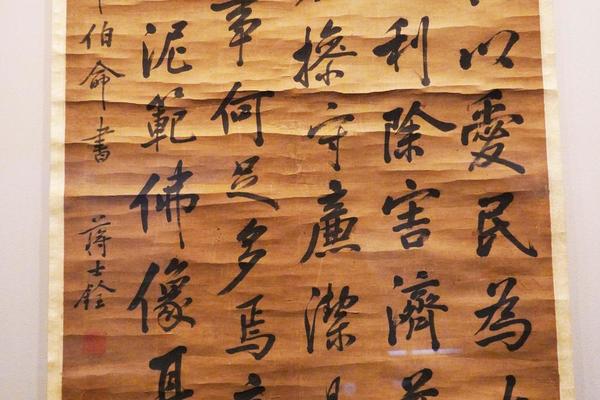 以愛民為
利除害濟
操守廉潔
事何足多焉
泥範佛像耳
伯侖書 蔣士銓